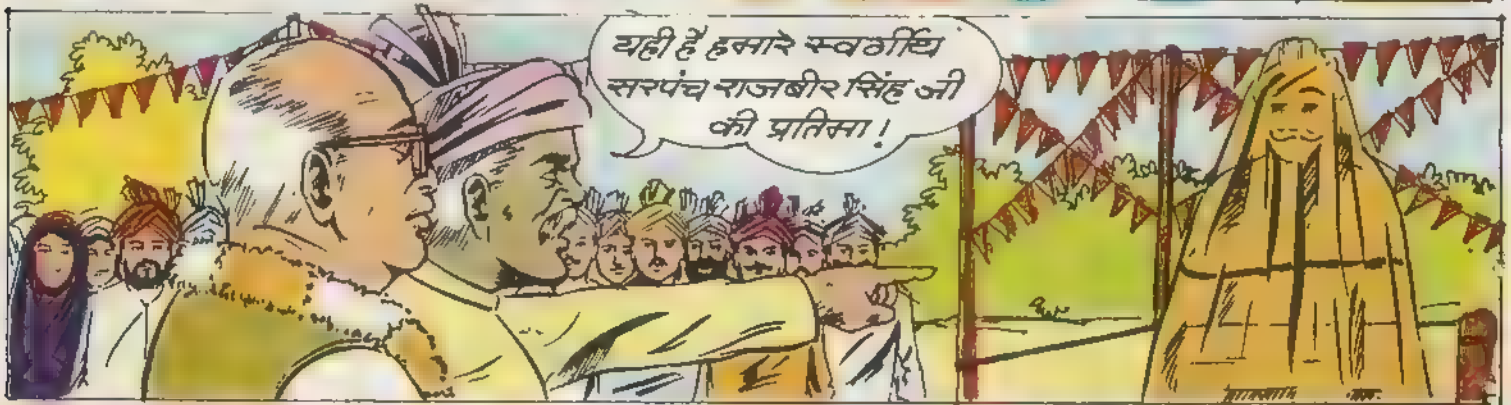 यही है हमारे स्वर्गीय
सरपंच राजबीर सिंह जी
की प्रतिमा!